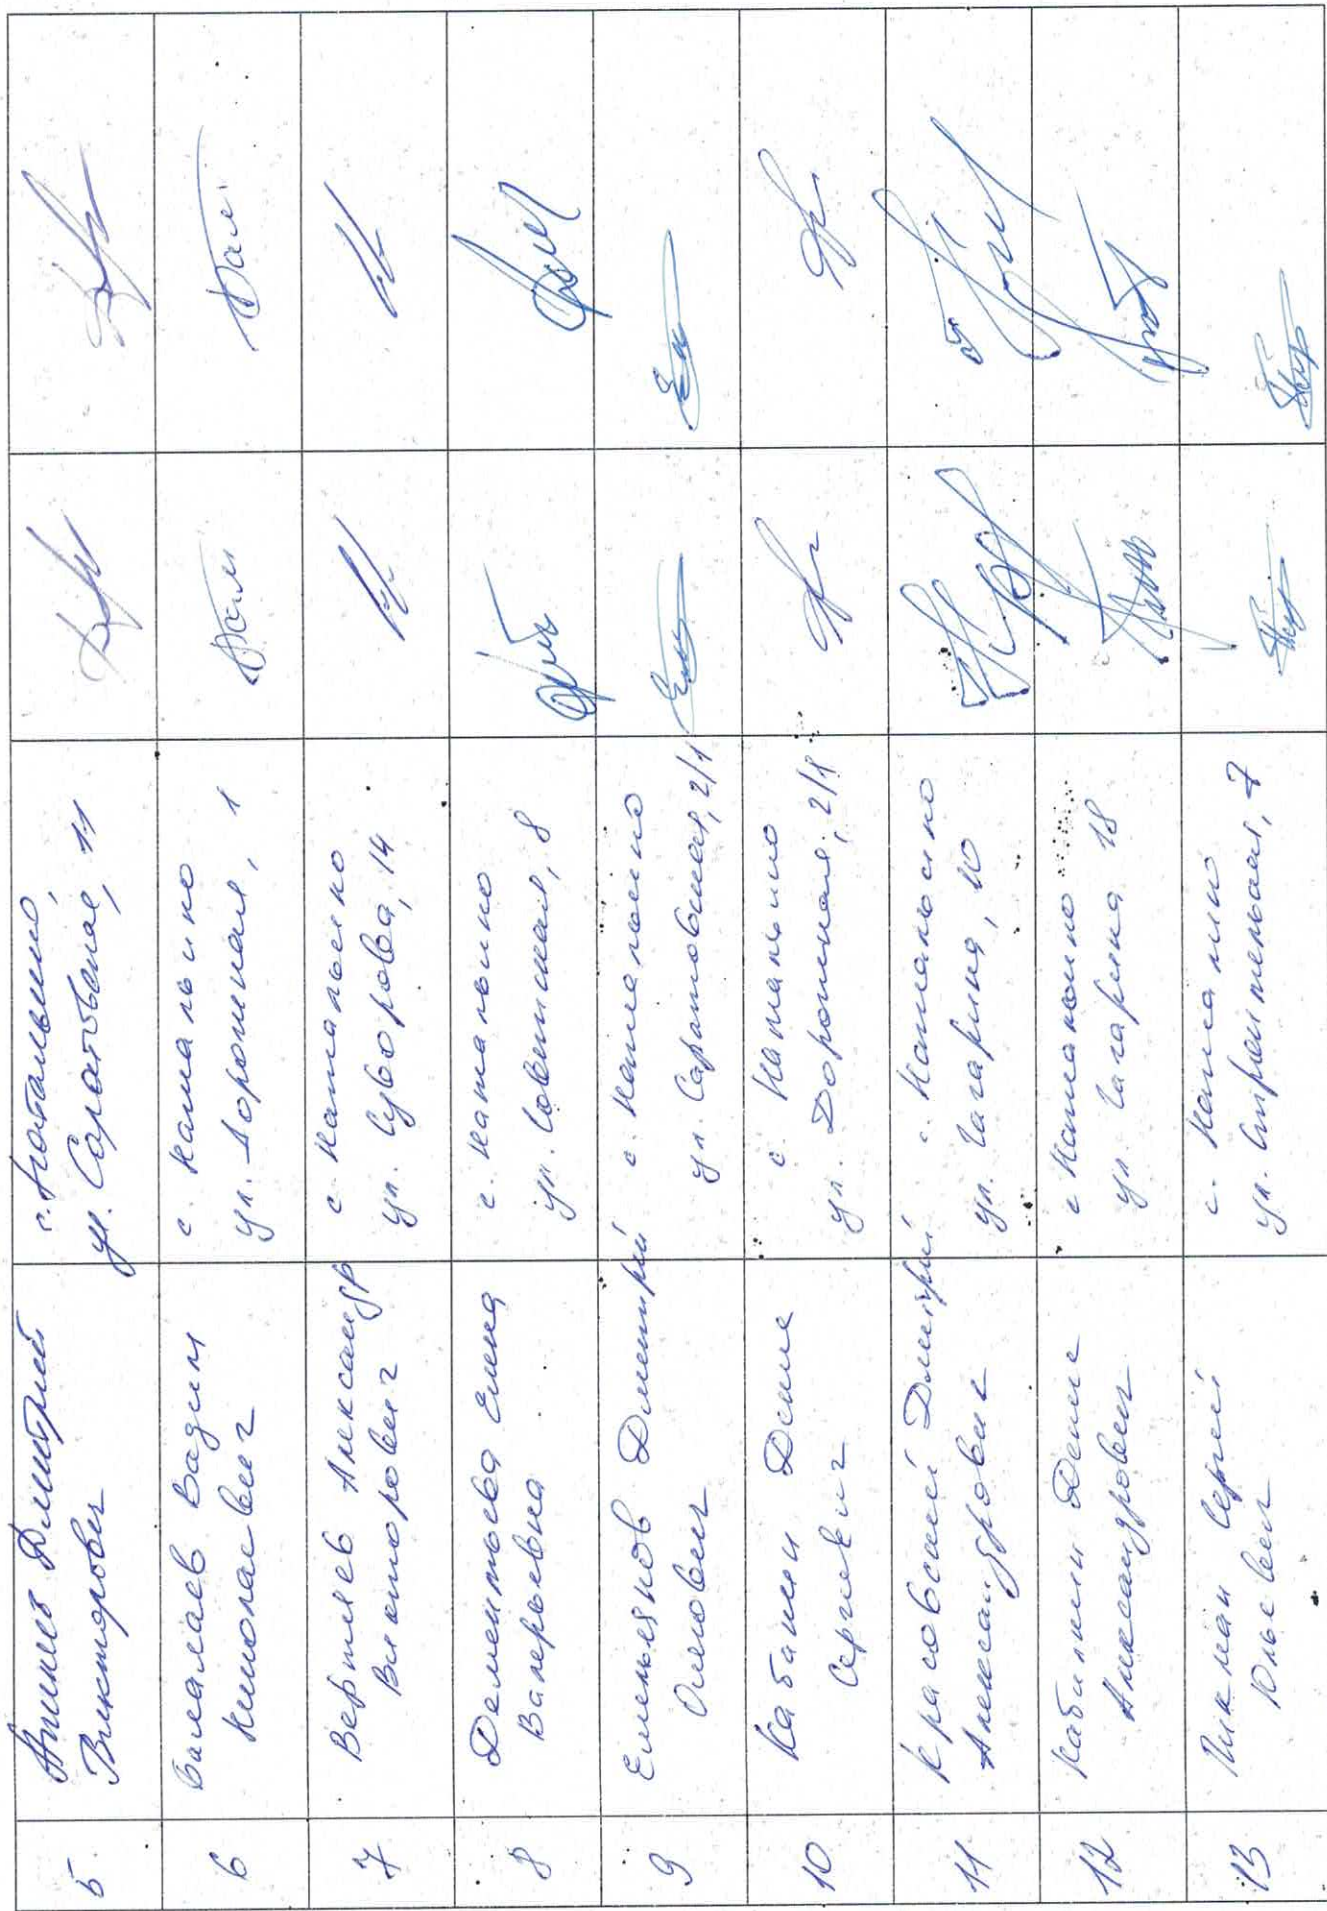 5
Дмитрий
Викторович
ул. Саратовская, 11
6
Балалаев Вадим
Николаевич
с. Натальино
ул. Дорожная, 1
7
Вертяев Александр
Викторович
с. Натальино
ул. Суворова, 14
8
Дементьева Елена
Валерьевна
с. Натальино
ул. Советская, 8
9
Емельянов Дмитрий
Олегович
с. Натальино
ул. Саратовская, 2/1
10
Кабанин Денис
Сергеевич
с. Натальино
ул. Дорожная, 2/1
11
Красовский Дмитрий
Александрович
с. Натальино
ул. Гагарина, 10
12
Денис
Александрович
с Натальино
ул. Гагарина 18
13
Сергей
Юльевич
с.
ул. Строительная, 7